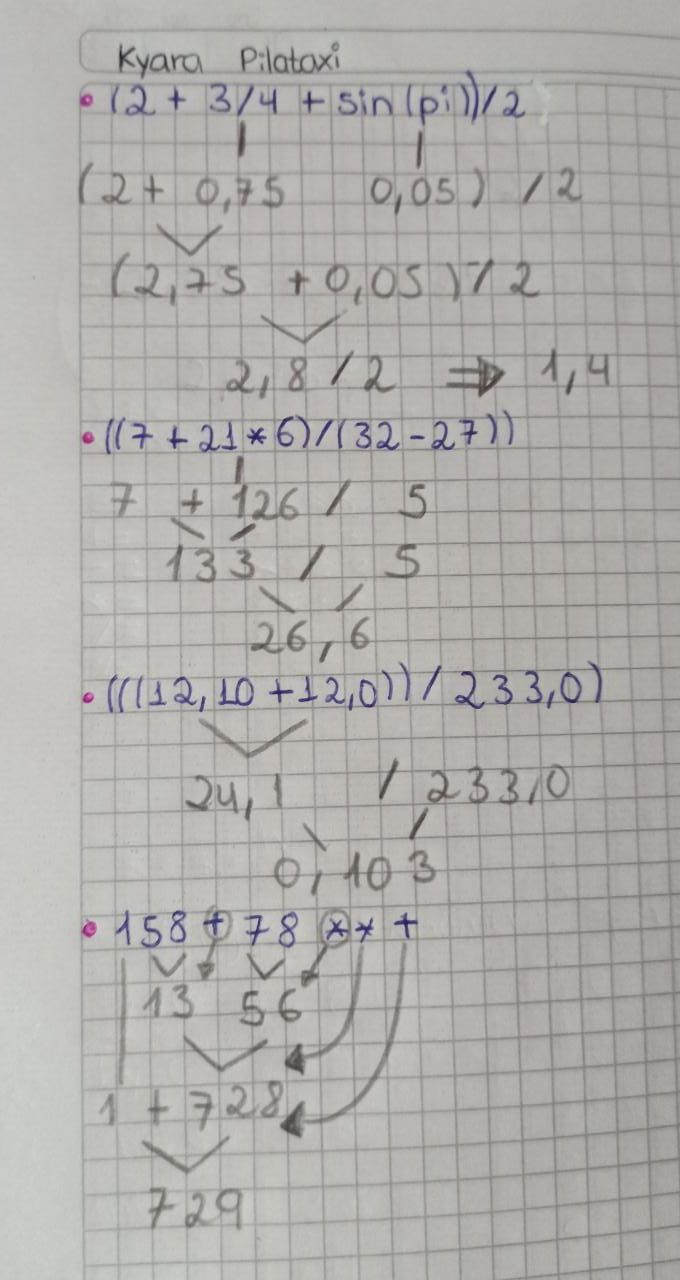 Kyara Pilataxi
• (2 + 3/4 + sin(pi))/2
(2 + 0,75 0,05) / 2
(2,75 + 0,05) / 2
2,8 / 2 ⇒ 1,4
• ((7 + 21 * 6) / (32 - 27))
7 + 126 / 5
133 / 5
26,6
• (((12,10 + 12,0)) / 233,0)
24,1 / 233,0
0,103
• 158 + 78 * * +
13 56
1 + 728
729